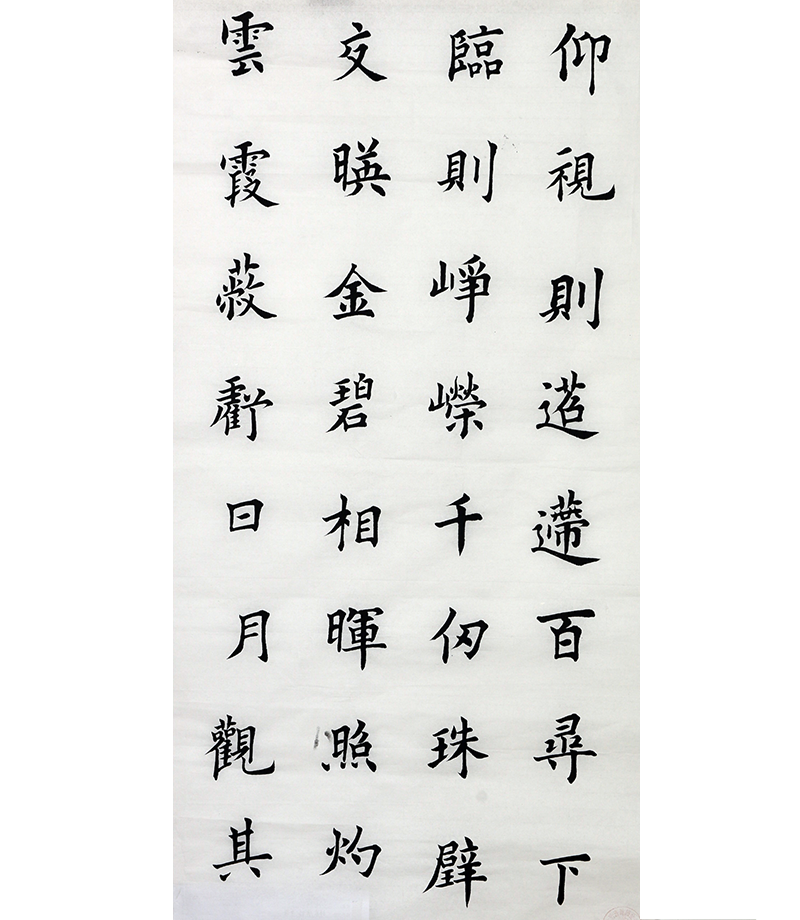 仰視則迢遰百尋下
臨則崢嶸千仞珠壁
交暎金碧相暉照灼
雲霞蔽虧日月觀其